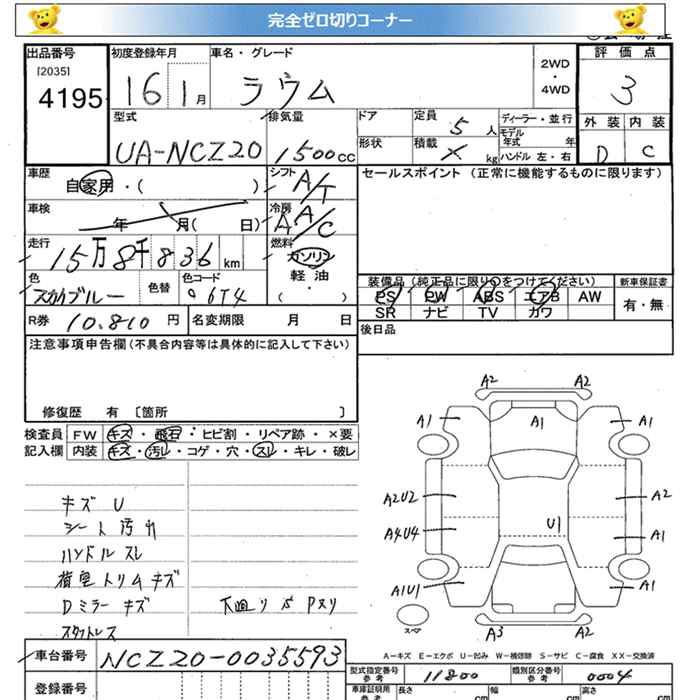 完全ゼロ切りコーナー
出品番号 初度登録年月 車名・グレード 2WD・4WD 評価点
[2035]
4195 16 1月 ラウム 3
型式 排気量 ドア 定員 5人 ディーラー・並行 外装 内装
モデル年式 年
UA-NCZ20 1500cc 形状 積載 × kg ハンドル 左・右 D C
車歴 自家用・( ) シフト A/T セールスポイント (正常に機能するものに限ります)
車検 年 月( 日) 冷房 A A/C
走行 15万8千836km 燃料 ガソリン
軽油
( ・ )
色 色替 色コード 装備品(純正品に限り○をつけてください) 新車保証書
ブルー 6T4 PS PW ABS エアB AW 有・無
SR ナビ TV カワ
R券 10.810円 名変期限 月 日 後日品
注意事項申告欄(不具合内容等は具体的に記入して下さい)
修復歴 有 〔箇所 〕
検査員 FW キズ・飛石・ヒビ割・リペア跡・×要
記入欄 内装 キズ・汚レ・コゲ・穴・スレ・キレ・破レ
A2 A2
A1 A1 A1
A2U2 A2
A4U4 U1 A1
A1U1 A1
スペア A3 A2
キズ U
シート汚れ
ハンドルスレ
トリムキズ
Dミラーキズ
スタットレス
A-キズ E-エクボ U-凹み W-補修跡 S-サビ C-腐食 XX-交換済
車台番号 NCZ20-0035593
型式指定番号 参考 11800 類別区分番号 参考 0004
登録番号 車庫証明用 参考 長さ cm 幅 cm 高さ cm